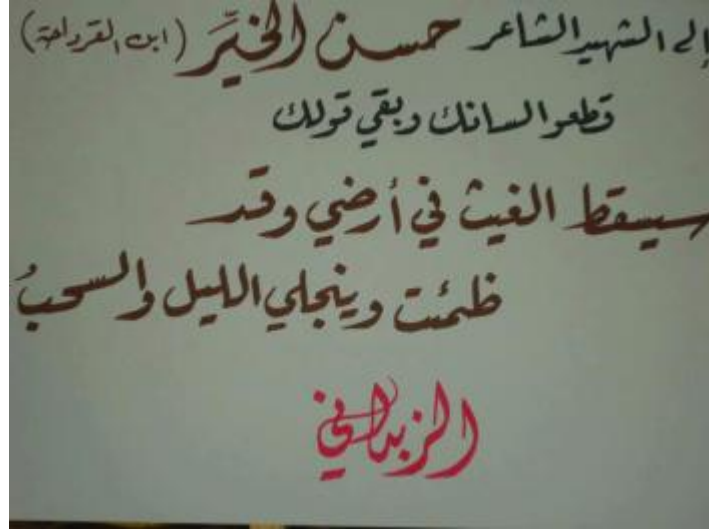 إلى الشهيد الشاعر حسن الخيِّر (ابن القرداحة)
قطعوا لسانك وبقي قولك
سيسقط الغيث في أرضي وقد
ظمئت وينجلي الليل والسحبُ
الزبداني